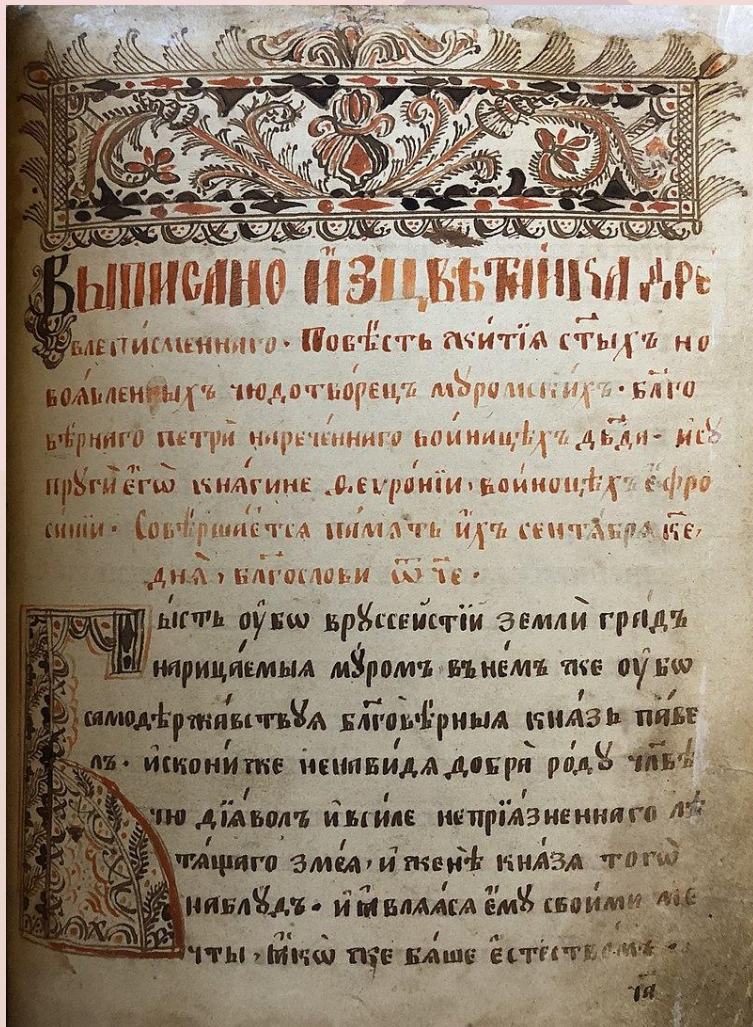 Выписано и҆з цвѣтника дре
влеписменнаго · Повѣсть жи́тїѧ ст҃ыхъ но
воѧ́вленныхъ чюдотворецъ мꙋ́ромскихъ · бл҃го
вѣ́рнаго петра̀ нарече́ннаго во и́ноцѣхъ дв҃да · и҆ сꙋ
прꙋ́ги є҆гѡ̀ кнѧги́не ѳ.евро́нїи, во и́ноцѣхъ є҆фро
синїи · Соверша́етсѧ па́мѧть и҆́хъ сентѧбрѧ к҃е,
днѧ̀, бл҃гослови ѿч҃е ·
Бы́сть оу҆́бѡ в рꙋссе́йстїй земли̑ гра́дъ
нарица́емыѧ мꙋ́ромъ в не́мъ же оу҆́бѡ
самоде́ржавствꙋѧ бл҃гове́рныѧ кнѧ́зь па́ве
лъ · и҆скони́ же ненави́дѧ добра̀ ро́дꙋ чл҃вѣ́
чю дїѧ́волъ и҆ всиле непрїѧ́зненнаго лѣ
та́щаго змеѧ, и҆ женѣ̀ кнѧ́зѧ тогѡ̀
на блꙋ́дъ · и҆ ꙗ҆влѧ́ѧсѧ є҆мꙋ̀ свои́ми ме
чты̀, ꙗ҆́кѡ же бѧ́ше є҆стество́мъ ·